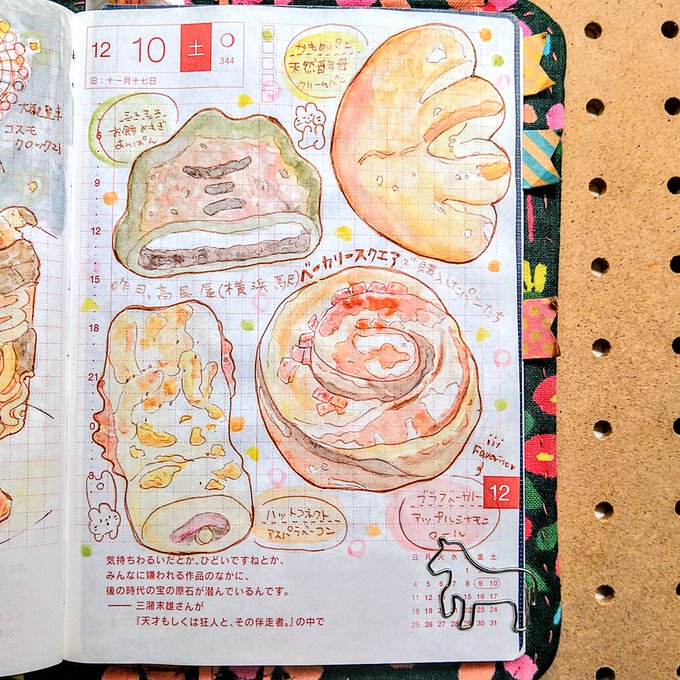 12 10 土
344
旧：十一月十七日
かもめパン
天然酵母
クリームパン
お餅よもぎ
あんぱん
コスモ
クロック21
9
12
15
18
21
昨日、高島屋(横浜駅)ベーカリースクエアで買
パンたち
Favorite
12
ハットコネクト
アスパラベーコン
ブラフベーカリー
アップルシナモン
ロール
気持ちわるいだとか、ひどいですねとか、
みんなに嫌われる作品のなかに、
後の時代の宝の原石が潜んでいるんです。
── 三潴末雄さんが
『天才もしくは狂人と、その伴走者。』の中で
日 月 火 水 金 土
1
4 5 6 8 9 10
11 12
18 19
25 26 27 28 29 30 31